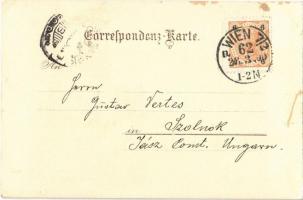 Correspondenz-Karte.
An
WIEN 7/2
62
1-2N
Herrn
Gustav Vertes
in
Szolnok
Jász Comt. Ungarn.